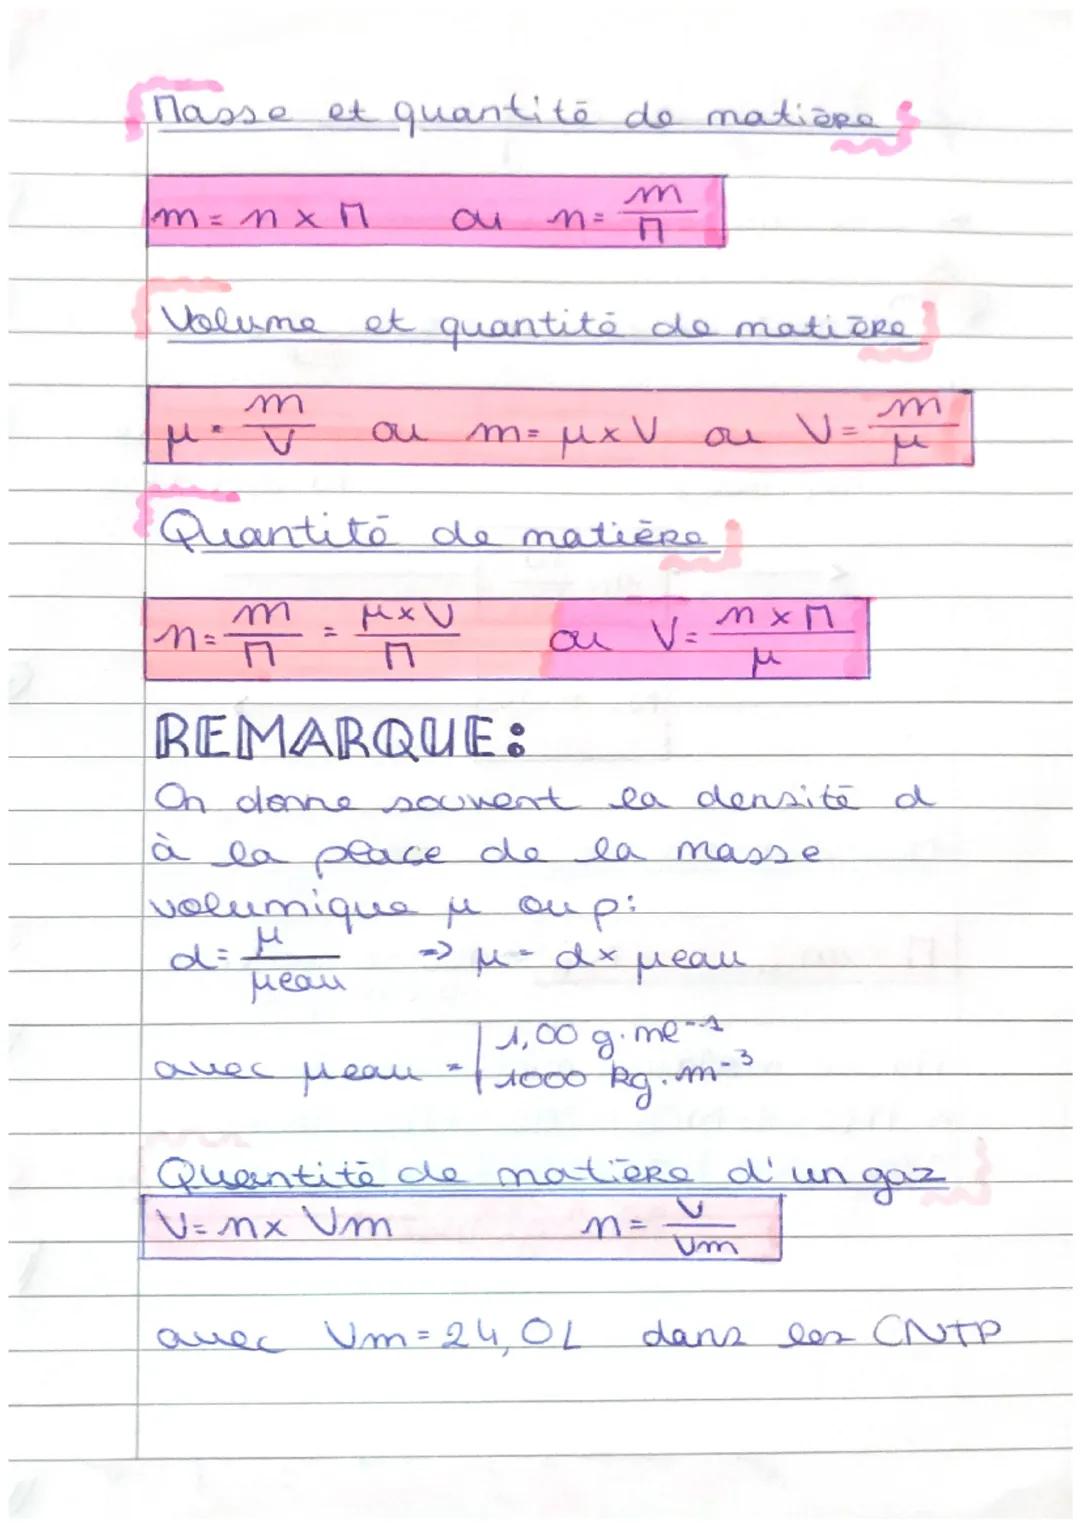 Masse et quantité de matière
m = n x M ou n = m/M
Volume et quantité de matière
μ = m/V ou m = μ x V ou V = m/μ
Quantité de matière
n = m/M = μ x V/M ou V = n x M/μ
REMARQUE:
On donne souvent la densité d
à la place de la masse
volumique μ ou ρ:
d = μ/μeau => μ = d x μeau
avec μeau = | 1,00 g.ml⁻¹
1000 kg.m⁻³
Quantité de matière d'un gaz
V = n x Vm n = V/Vm
avec Vm = 24,0L dans les CNTP